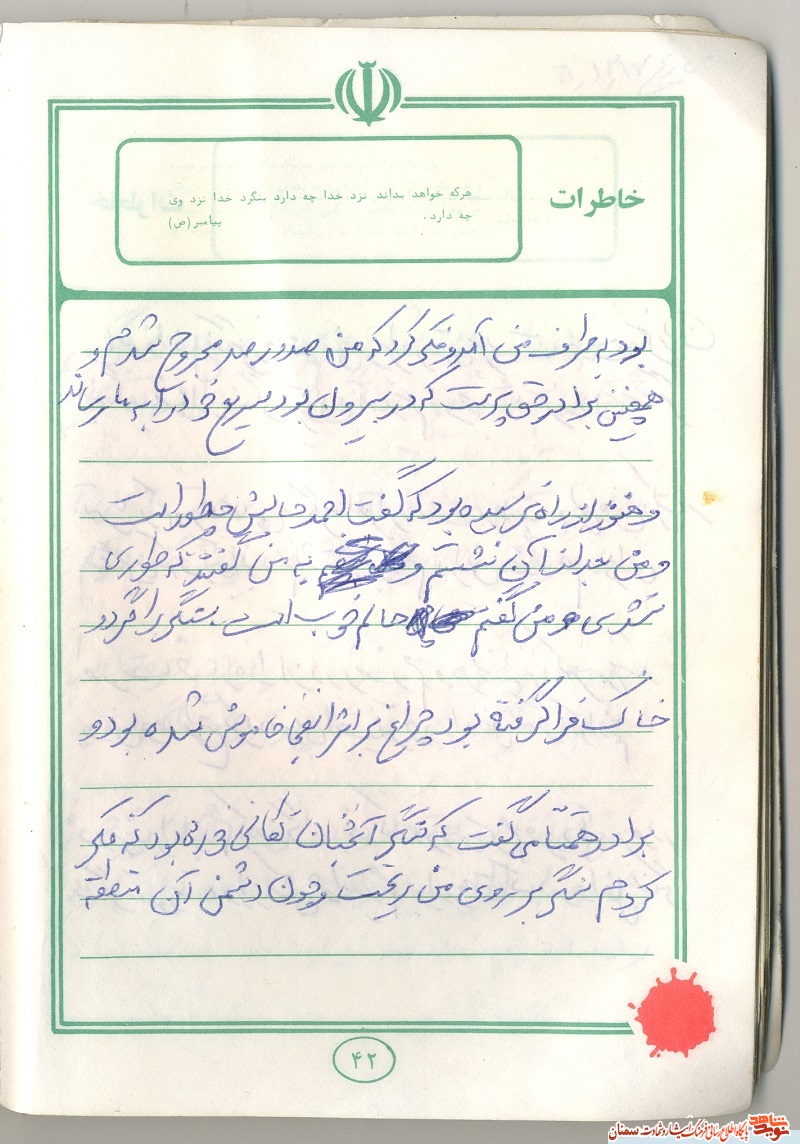 خاطرات
هرکه خواهد بداند نزد خدا چه دارد بنگرد خدا نزد وی
چه دارد.
پیامبر(ص)
بود به طرف من آمد و فکر کرد که من صد در صد مجروح شدم و
همچنین برادر حق پرست که در بیرون بود سریع خود را به ما رساند
و هنوز از راه نرسیده بود که گفت احمد حالش چطور است
و من بعد از آن نشستم و به من گفتند که طوری
نشدی و من گفتم حالم خوب است سنگر را گرد و
خاک فرا گرفته بود چراغ بر اثر انفجار خاموش شده بود و
برادر همتا می گفت که سنگر آنچنان تکانی خورده بود که فکر
کردم سنگر بر روی من ریخت و چون دشمن آن منطقه
۴۲
شاهد
نوید
پایگاه اطلاع رسانی فرهنگ ایثار و شهادت سمنان